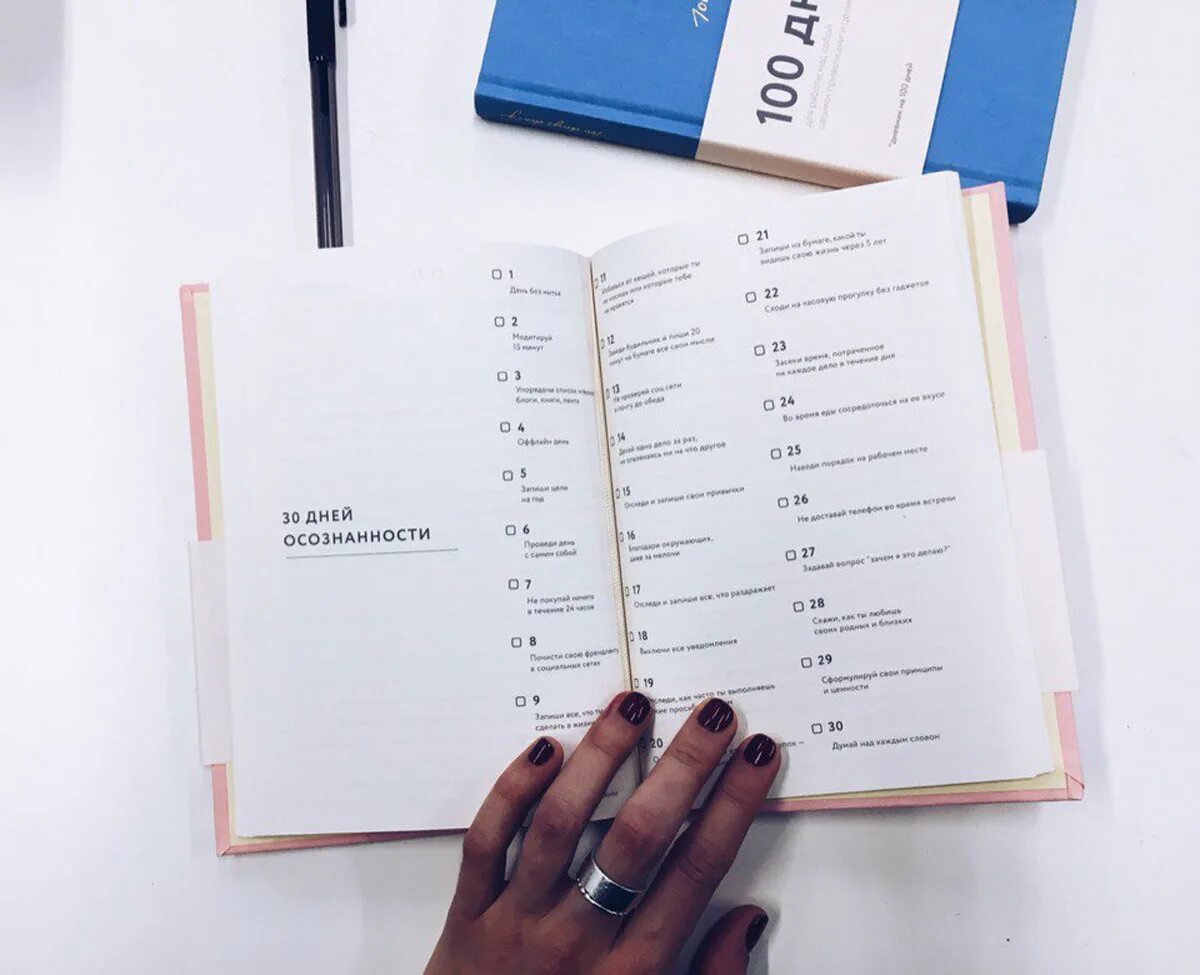 100 ДН
для работы над собой
своими привычками и целями
*дневник на 100 дней
30 ДНЕЙ
ОСОЗНАННОСТИ
1
День без нытья
2
Медитируй
15 минут
3
Упорядочи список чтения:
блоги, книги, лента
4
Оффлайн день
5
Запиши цели
на год
6
Проведи день
с самим собой
7
Не покупай ничего
в течение 24 часов
8
Почисти свою френдленту
в социальных сетях
9
Запиши все, что ты
сделать в жизни
11
Избавься от вещей, которые ты
не носишь или которые тебе
не нравятся
12
Заведи будильник и пиши 20
минут на бумаге все свои мысли
13
Не проверяй соц.сети
и почту до обеда
14
Делай одно дело за раз,
не отвлекаясь ни на что другое
15
Отследи и запиши свои привычки
16
Благодари окружающих,
даже за мелочи
17
Отследи и запиши все, что раздражает
18
Выключи все уведомления
19
Отследи, как часто ты выполняешь
просьб
20
упок —
21
Запиши на бумаге, какой ты
видишь свою жизнь через 5 лет
22
Сходи на часовую прогулку без гаджетов
23
Засеки время, потраченное
на каждое дело в течение дня
24
Во время еды сосредоточься на ее вкусе
25
Наведи порядок на рабочем месте
26
Не доставай телефон во время встречи
27
Задавай вопрос "зачем я это делаю?"
28
Скажи, как ты любишь
своих родных и близких
29
Сформулируй свои принципы
и ценности
30
Думай над каждым словом